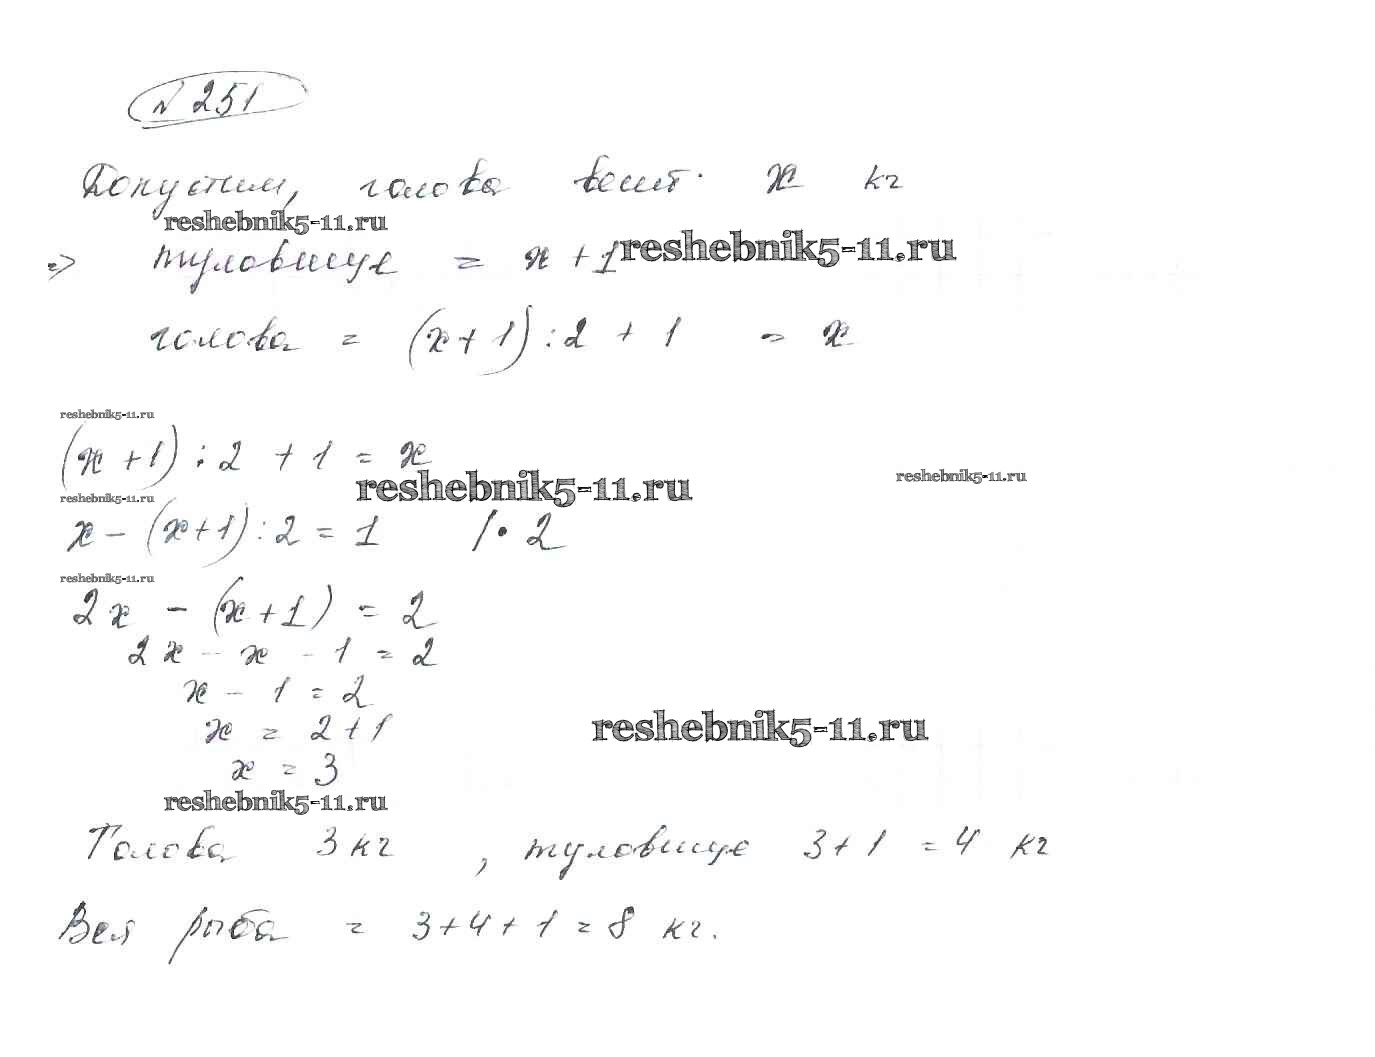 № 251
Допустим, голова весит x кг
reshebnik5-11.ru
=> туловище = x + 1 reshebnik5-11.ru
голова = (x+1):2 + 1 = x
reshebnik5-11.ru
(x+1):2 + 1 = x
reshebnik5-11.ru
reshebnik5-11.ru
reshebnik5-11.ru
x - (x+1):2 = 1 /· 2
reshebnik5-11.ru
2x - (x+1) = 2
2x - x - 1 = 2
x - 1 = 2
x = 2+1
reshebnik5-11.ru
x = 3
reshebnik5-11.ru
Голова 3 кг , туловище 3+1 = 4 кг
Вся рыба = 3+4+1 = 8 кг.